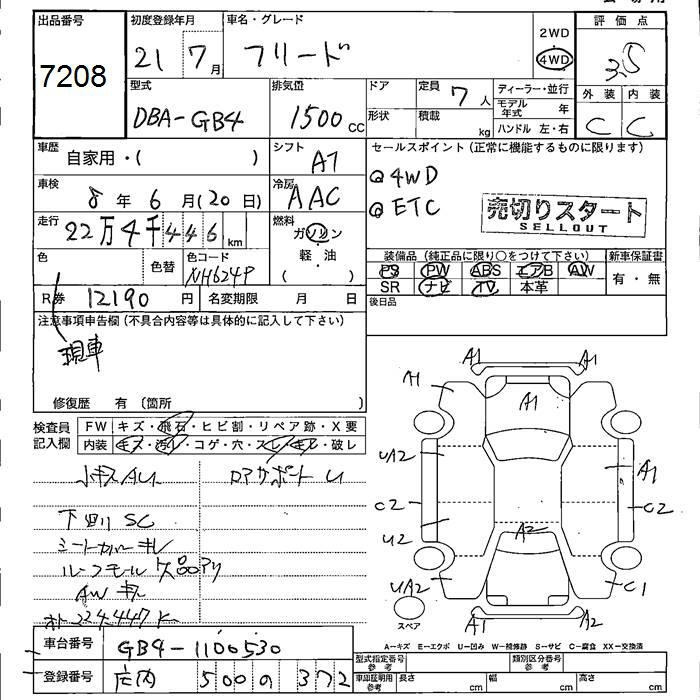 出品番号 初度登録年月 車名・グレード 評価点
7208 21年7月 フリード 2WD 4WD 3.5
外装 内装
C C
型式 排気量 ドア 定員 7人 ディーラー・並行
DBA-GB4 1500cc 形状 積載 kg モデル年式 年
ハンドル 左・右
車歴 自家用・( ) シフト AT セールスポイント(正常に機能するものに限ります)
車検 8年6月(20日) 冷房 AAC 4WD
ETC
売切りスタート
SELLOUT
走行 22万4千446km 燃料 ガソリン
軽・油
( )
色 色替 色コード NH624P
装備品(純正品に限り○をつけて下さい) 新車保証書
PS PW ABS エアB AW 有・無
SR ナビ TV 本革
R券 12190円 名変期限 月 日 後日品
注意事項申告欄(不具合内容等は具体的に記入して下さい)
現車
修復歴 有(箇所
検査員記入欄 FW キズ・飛石・ヒビ割・リペア跡・X要
内装 キズ・汚レ・コゲ・穴・スレ・キレ・破レ
小キズAU
下回リSC
シートカバーキレ
ルーフモール欠品アリ
AWキズ
A1 A1
A1 A1
UA2 A1
C2 C2
U2 A2
UA2 C1
A1 A2
スペア
A-キズ E-エクボ U-凹み W-補修跡 S-サビ C-腐食 XX-交換済
車台番号 GB4-1100530
登録番号 庄内 500 の 372
型式指定番号 参考 類別区分番号 参考
車庫証明用 参考 長さ cm 幅 cm 高さ cm